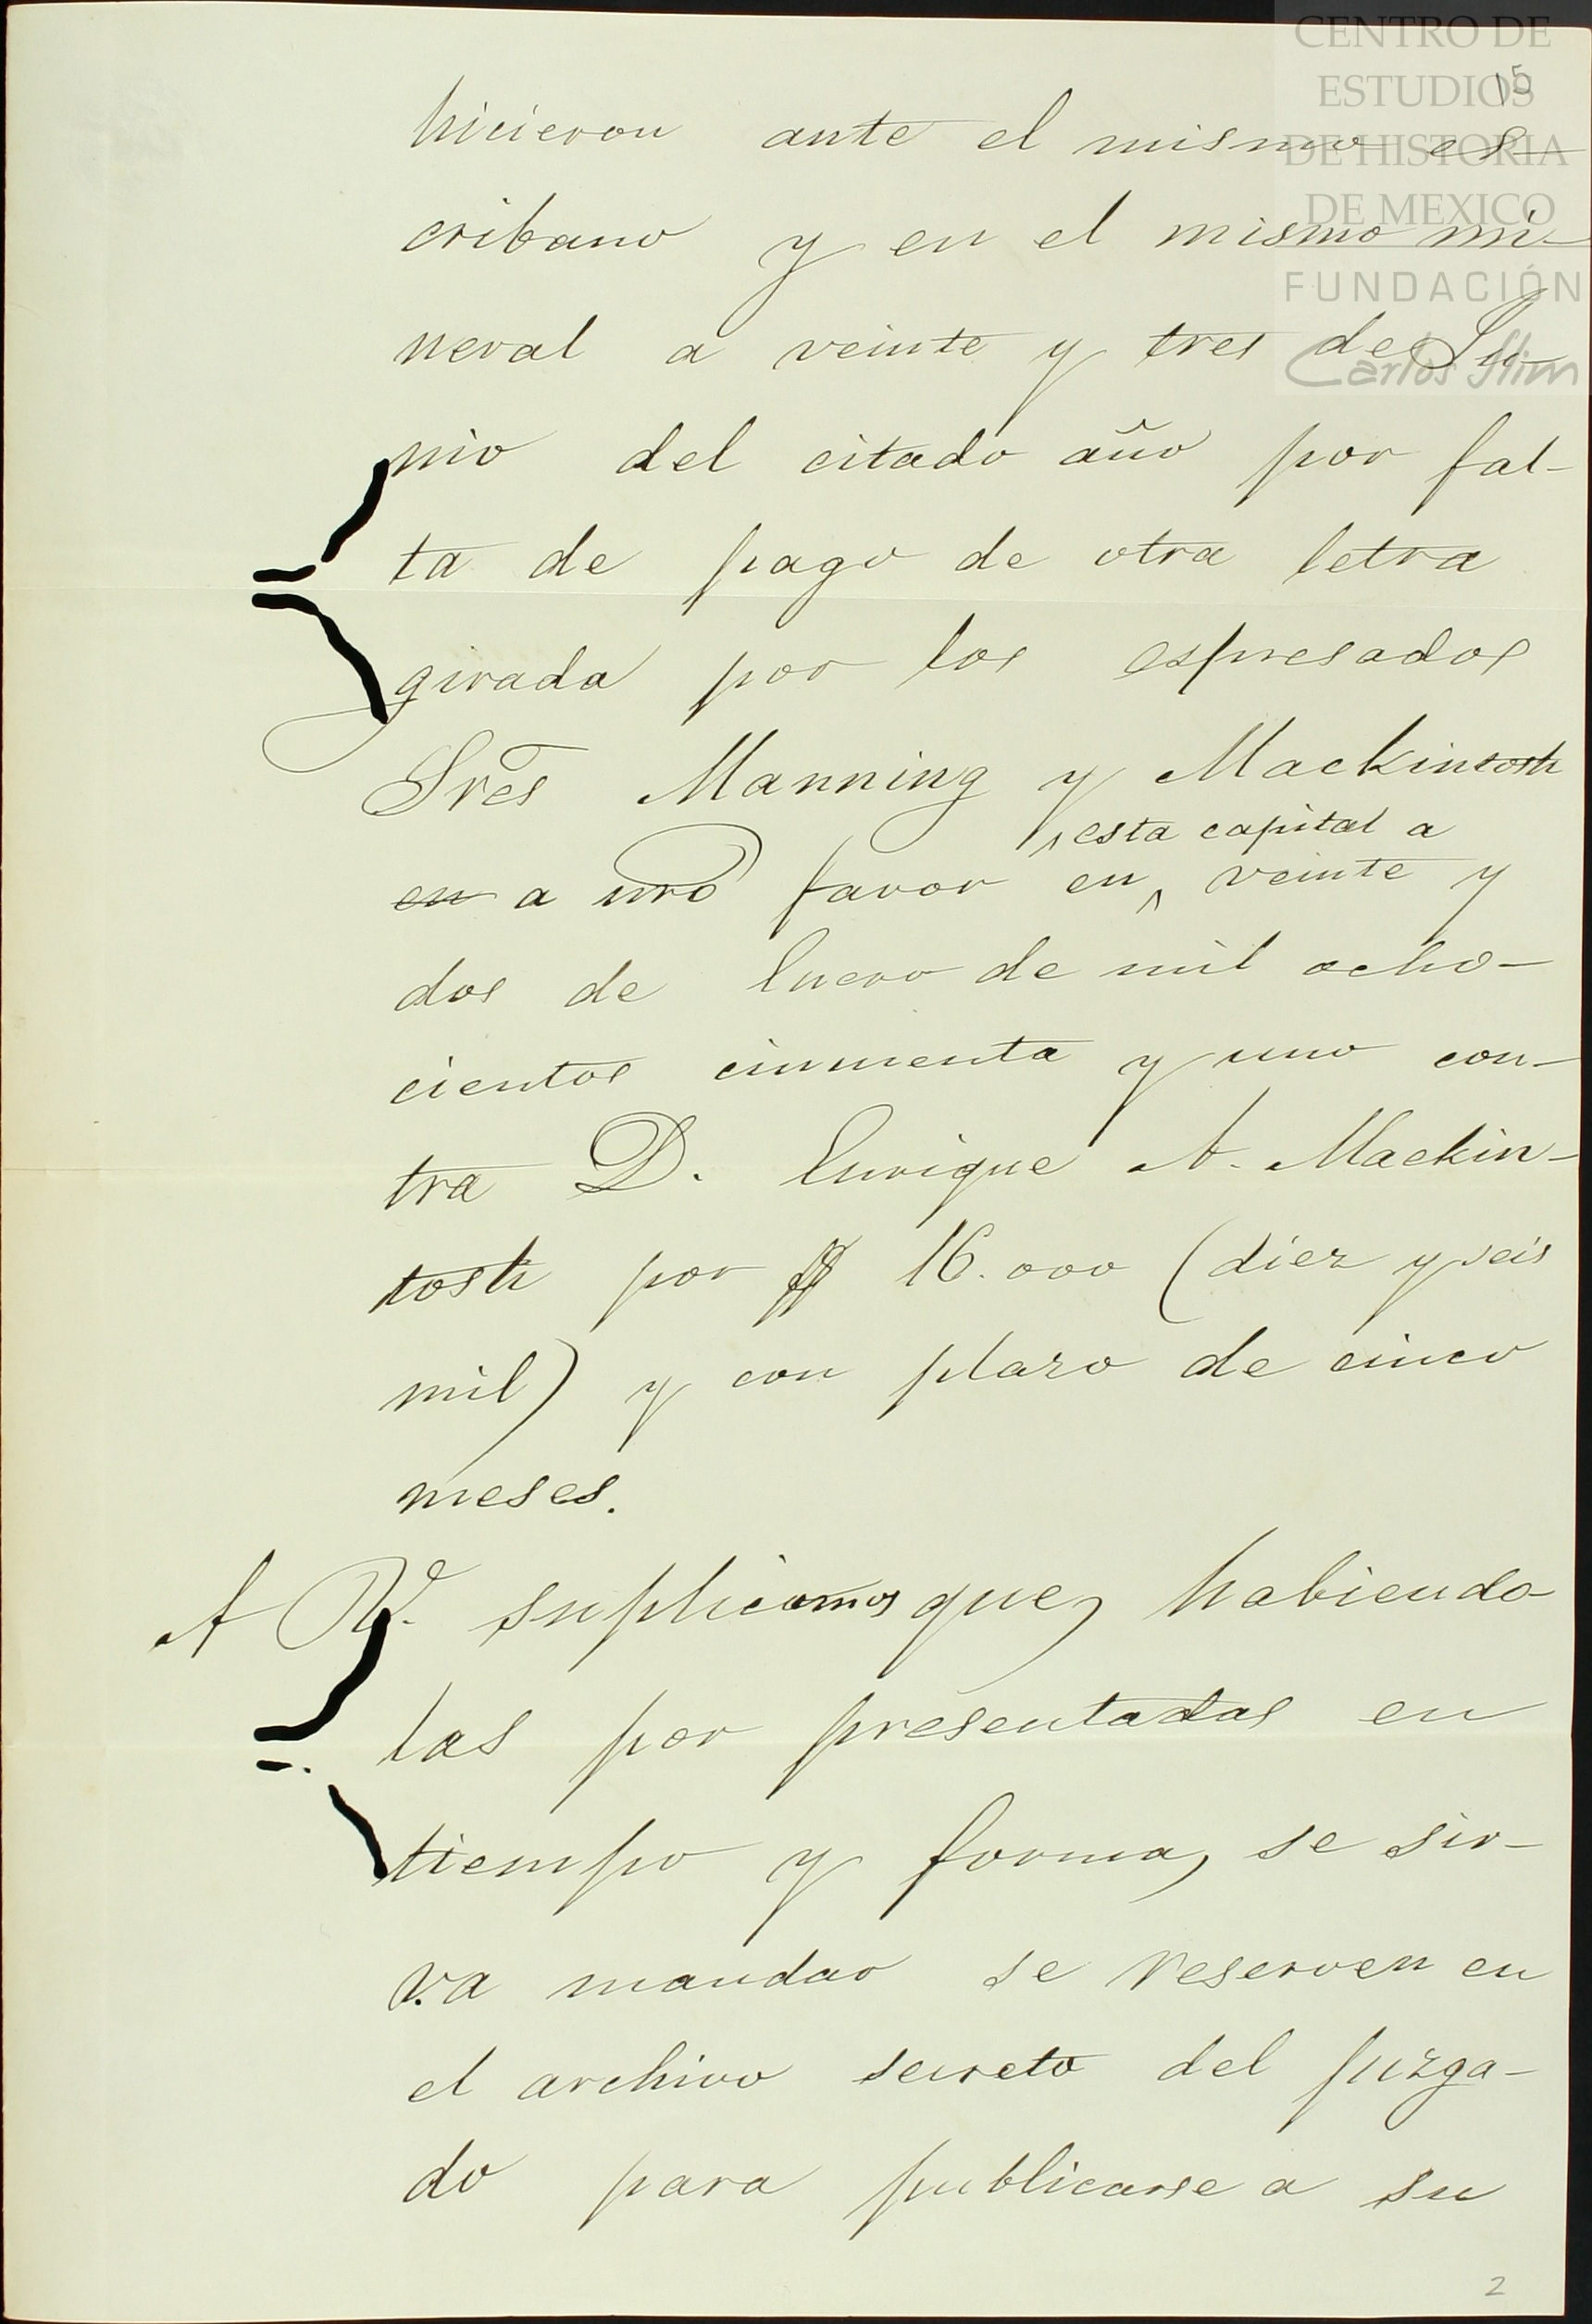 CENTRO DE
ESTUDIOS
DE HISTORIA
DE MEXICO
FUNDACIÓN
Carlos Slim
15
hicieron ante el mismo es-
cribano y en el mismo mi-
neral a veinte y tres de Ju-
nio del citado año por fal-
ta de pago de otra letra
girada por los espresados
Sres Manning y Mackintosh
esta capital a
en a nro favor en veinte y
dos de Enero de mil ocho-
cientos cincuenta y uno con-
tra D. Enrique A. Mackin-
tosh por $ 16.000 (diez y seis
mil) y con plazo de cinco
meses.
A V. suplicamos que, habiendo
las por presentadas en
tiempo y forma, se sir-
va mandar se reserven en
el archivo secreto del juzga-
do para publicarse a su
2